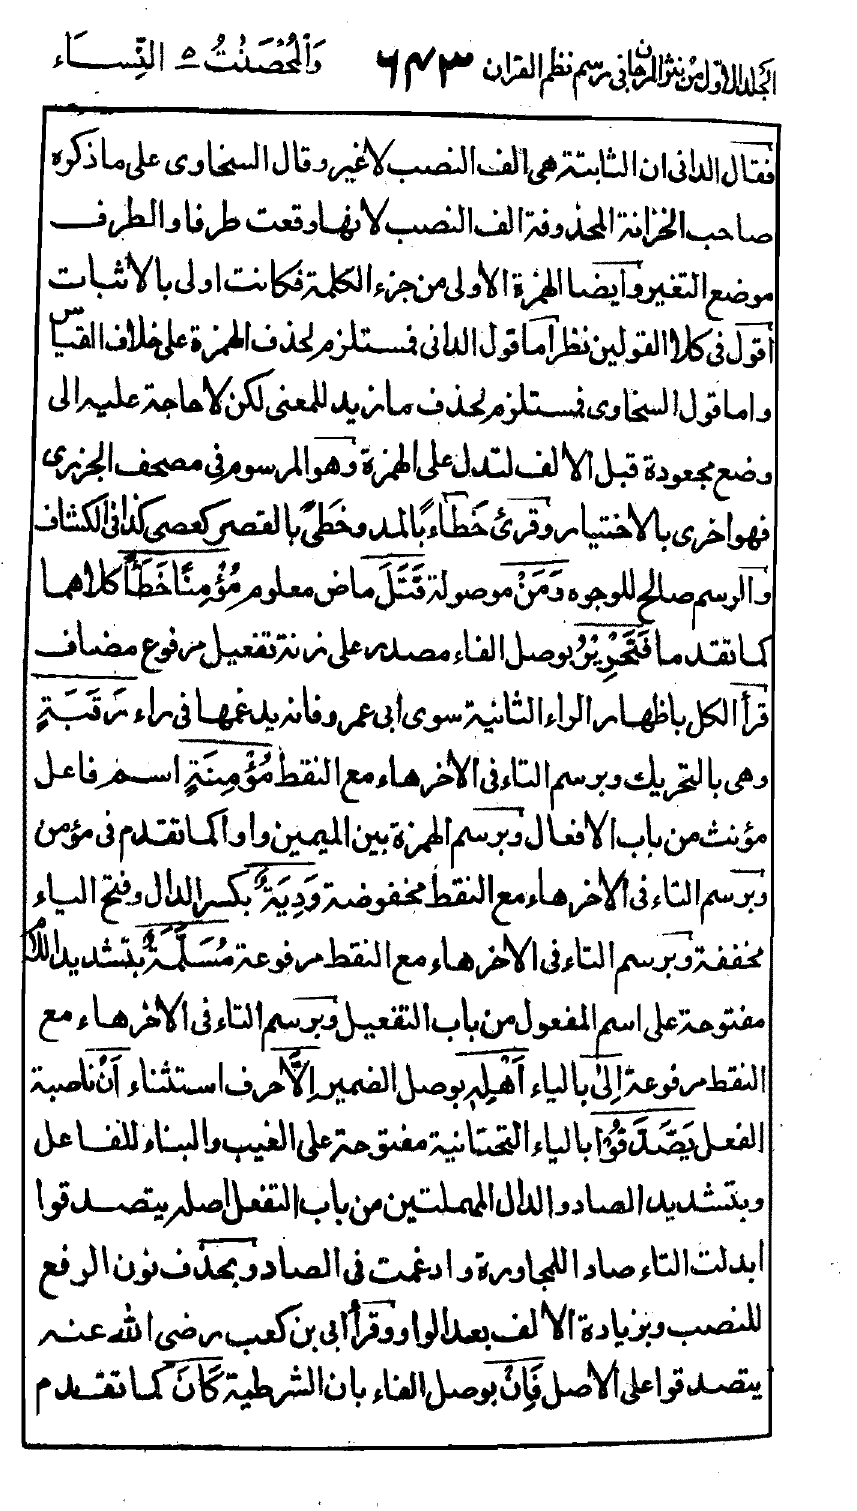 الجلد الاول من نثر المرجان فی رسم نظم القران ٦٤٣ وَالْمُحْصَنٰتُ ٥ النِّسَاء
فقال الدانی ان الثابتة هی الف النصب لا غیر وقال السخاوی علی ما ذکره
صاحب الخزانة المحذوفة الف النصب لانها وقعت طرفا والطرف
موضع التغیر وایضا الهمزة الاولی من جزء الکلمة فکانت اولی بالاثبات
اقول فی کلا القولین نظر اما قول الدانی فمستلزم لحذف الهمزة علی خلاف القیاس
واما قول السخاوی فمستلزم لحذف ما زید للمعنی لکن لا حاجة علیه الی
وضع مجعودة قبل الالف لتدل علی الهمزة وهو المرسوم فی مصحف الجزری
فهو احری بالاختیار وقرئ خَطَاءً بالمد وخَطًی بالقصر کعصی کذا فی الکشاف
والرسم صالح للوجوه وَمَنْ موصولة قَتَلَ ماض معلوم مُؤْمِنًا خَطَأً کلاهما
کما تقدما فَتَحْرِیْرُ بوصل الفاء مصدر علی زنة تفعیل مرفوع مضاف
قرأ الکل باظهار الراء الثانیة سوی ابی عمرو فانه یدغمها فی راء رَقَبَةٍ
وهی بالتحریك وبرسم التاء فی الاخر هاء مع النقط مُؤْمِنَةٍ اسم فاعل
مؤنث من باب الافعال وبرسم الهمزة بین المیمین واوا کما تقدم فی مؤمن
وبرسم التاء فی الاخر هاء مع النقط مخفوضة وَدِیَةٌ بکسر الدال وفتح الیاء
مخففة وبرسم التاء فی الاخر هاء مع النقط مرفوعة مُسَلَّمَةٌ بتشدید اللام
مفتوحة علی اسم المفعول من باب التفعیل وبرسم التاء فی الاخر هاء مع
النقط مرفوعة اِلٰی بالیاء اَهْلِهٖ بوصل الضمیر اِلَّا حرف استثناء اَنْ ناصبة
الفعل یَصَّدَّقُوْا بالیاء التحتانیة مفتوحة علی الغیب والبناء للفاعل
وبتشدید الصاد والدال المهملتین من باب التفعل اصله یتصدقوا
ابدلت التاء صادا للمجاورة وادغمت فی الصاد وبحذف نون الرفع
للنصب وبزیادة الالف بعد الواو وقرأ ابی بن کعب رضی الله عنه
یتصدقوا علی الاصل فَاِنْ بوصل الفاء بان الشرطیة کَانَ کما تقدم